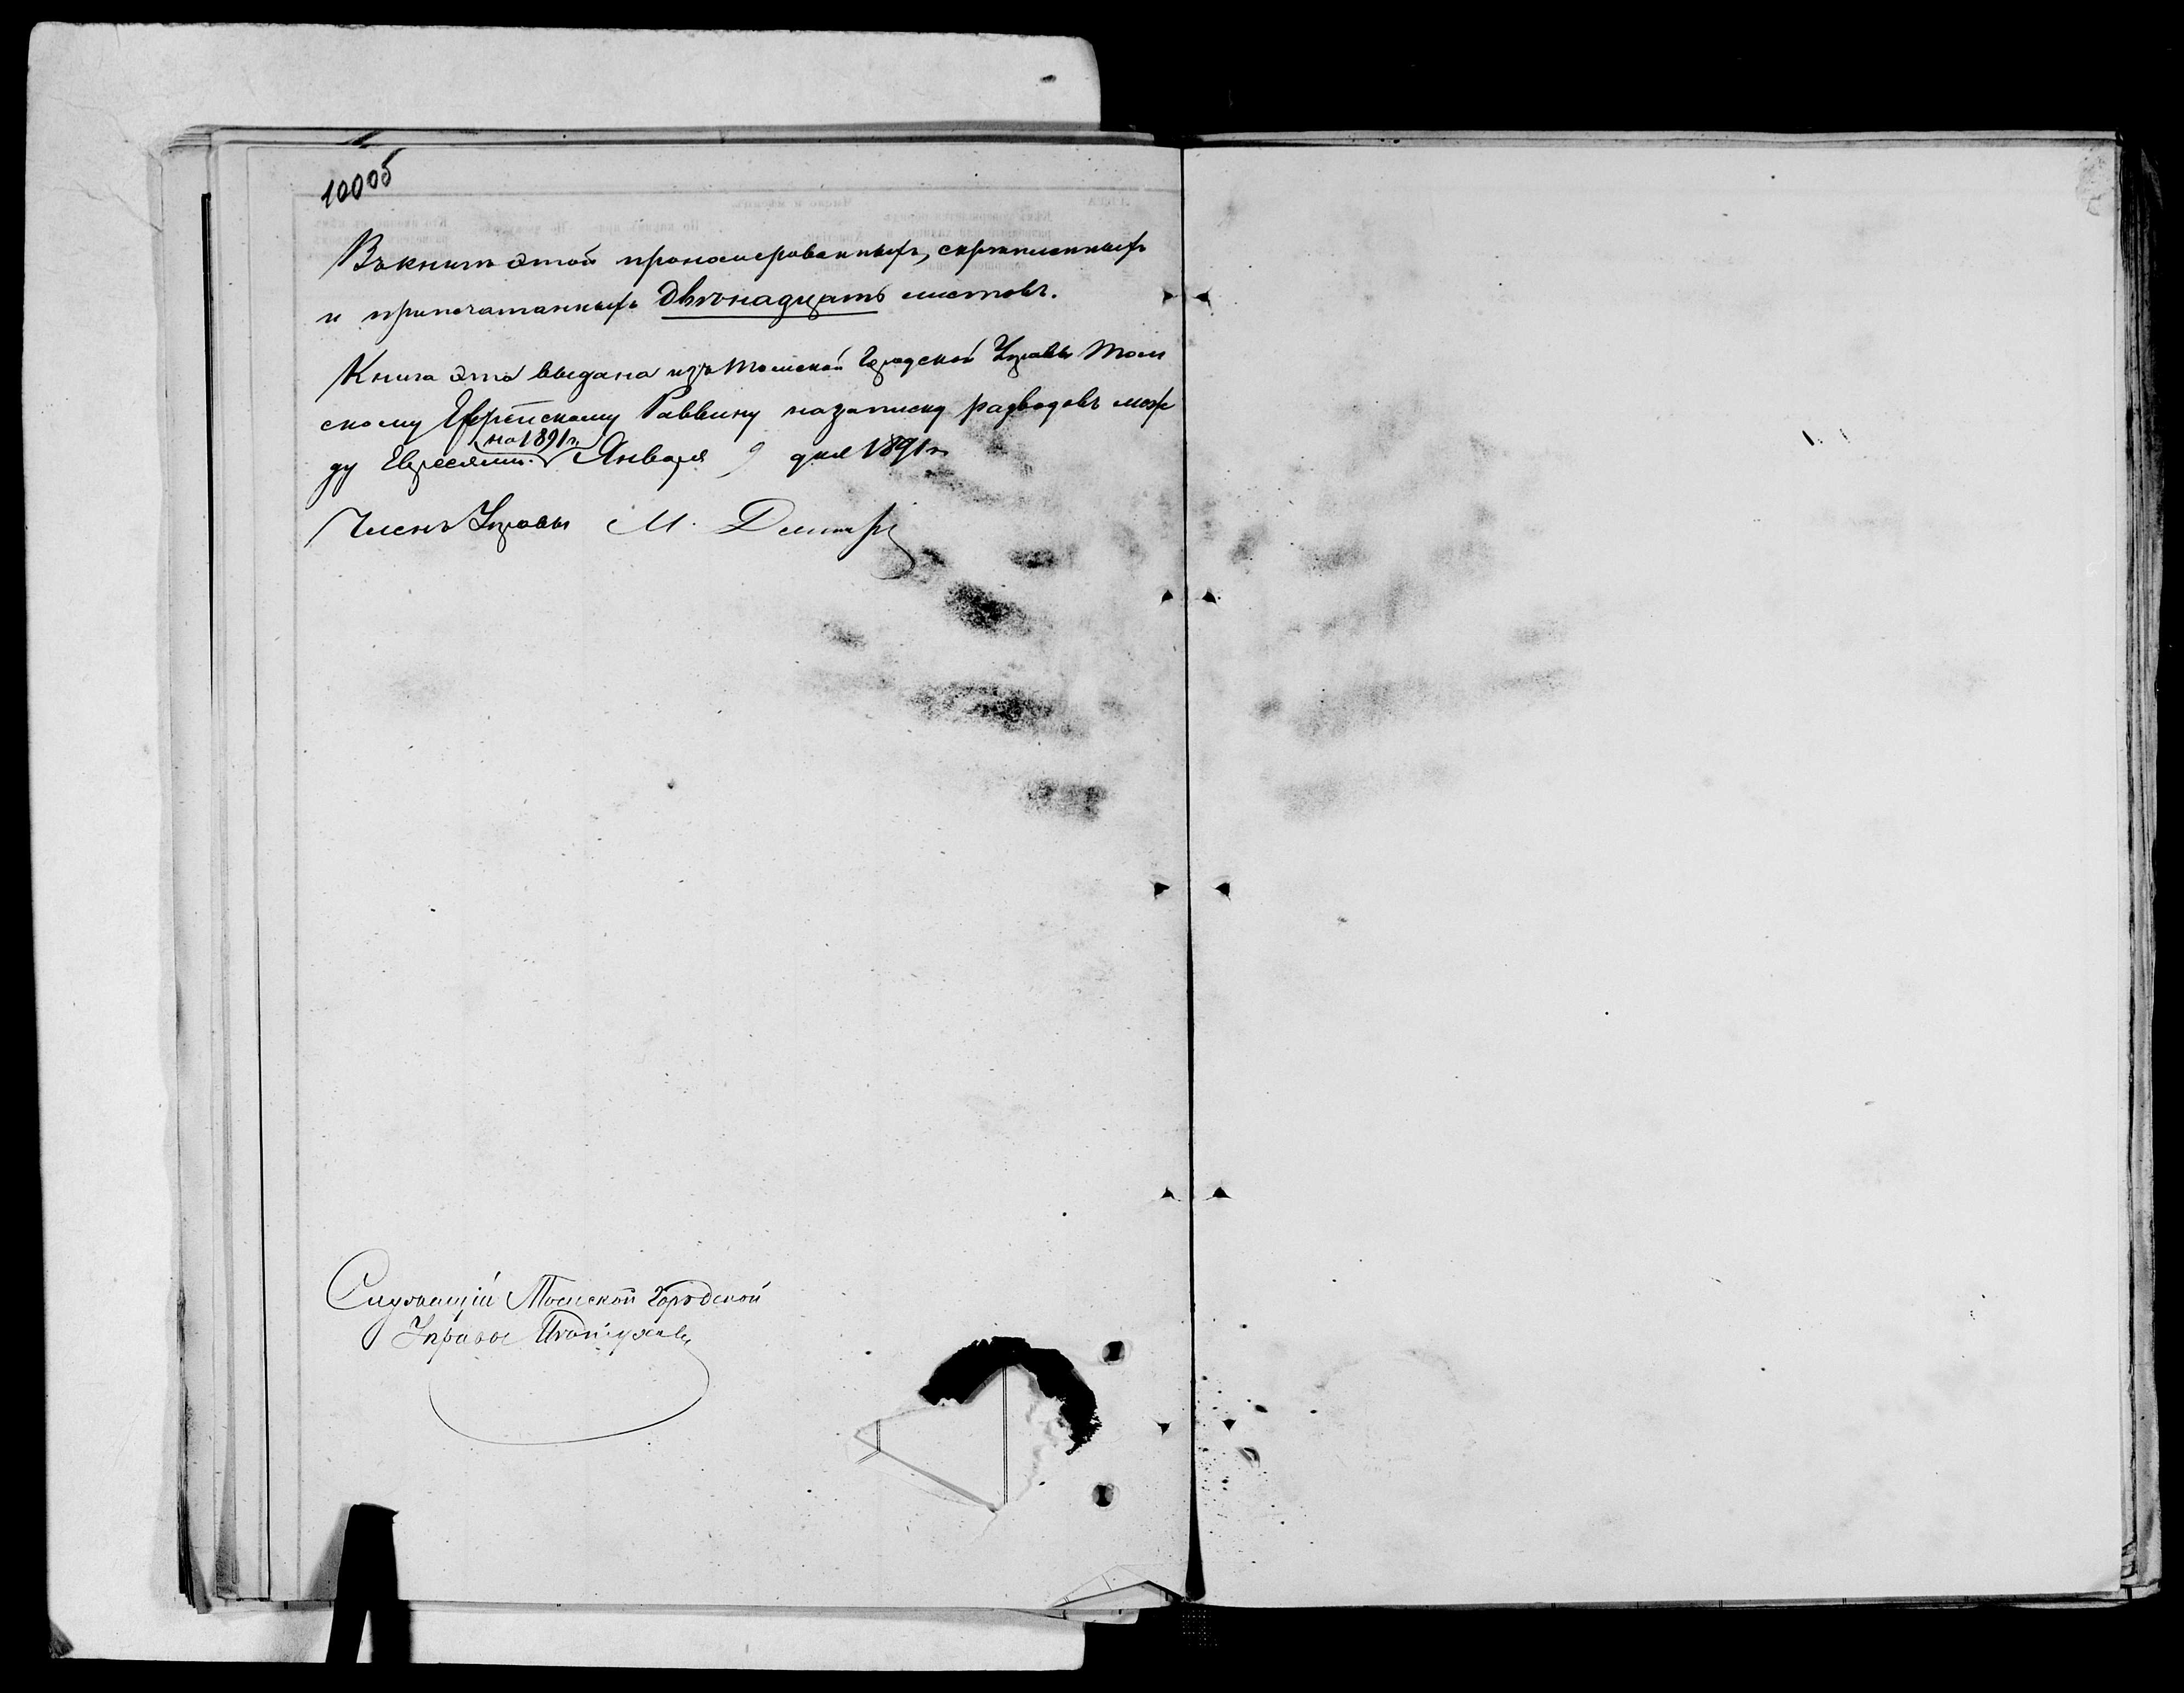 100об
Въ книгѣ этой прономерованныхъ, скрѣпленныхъ
и припечатанныхъ двѣнадцать листовъ.
Книга эта выдана изъ Томской Городской Управы Том
скому Еврейскому Раввину на записку разводовъ меж
ду Евреями на 1891 г. Января 9 дня 1891 г.
Членъ Управы М.
Служащій Томской Городской
Управы